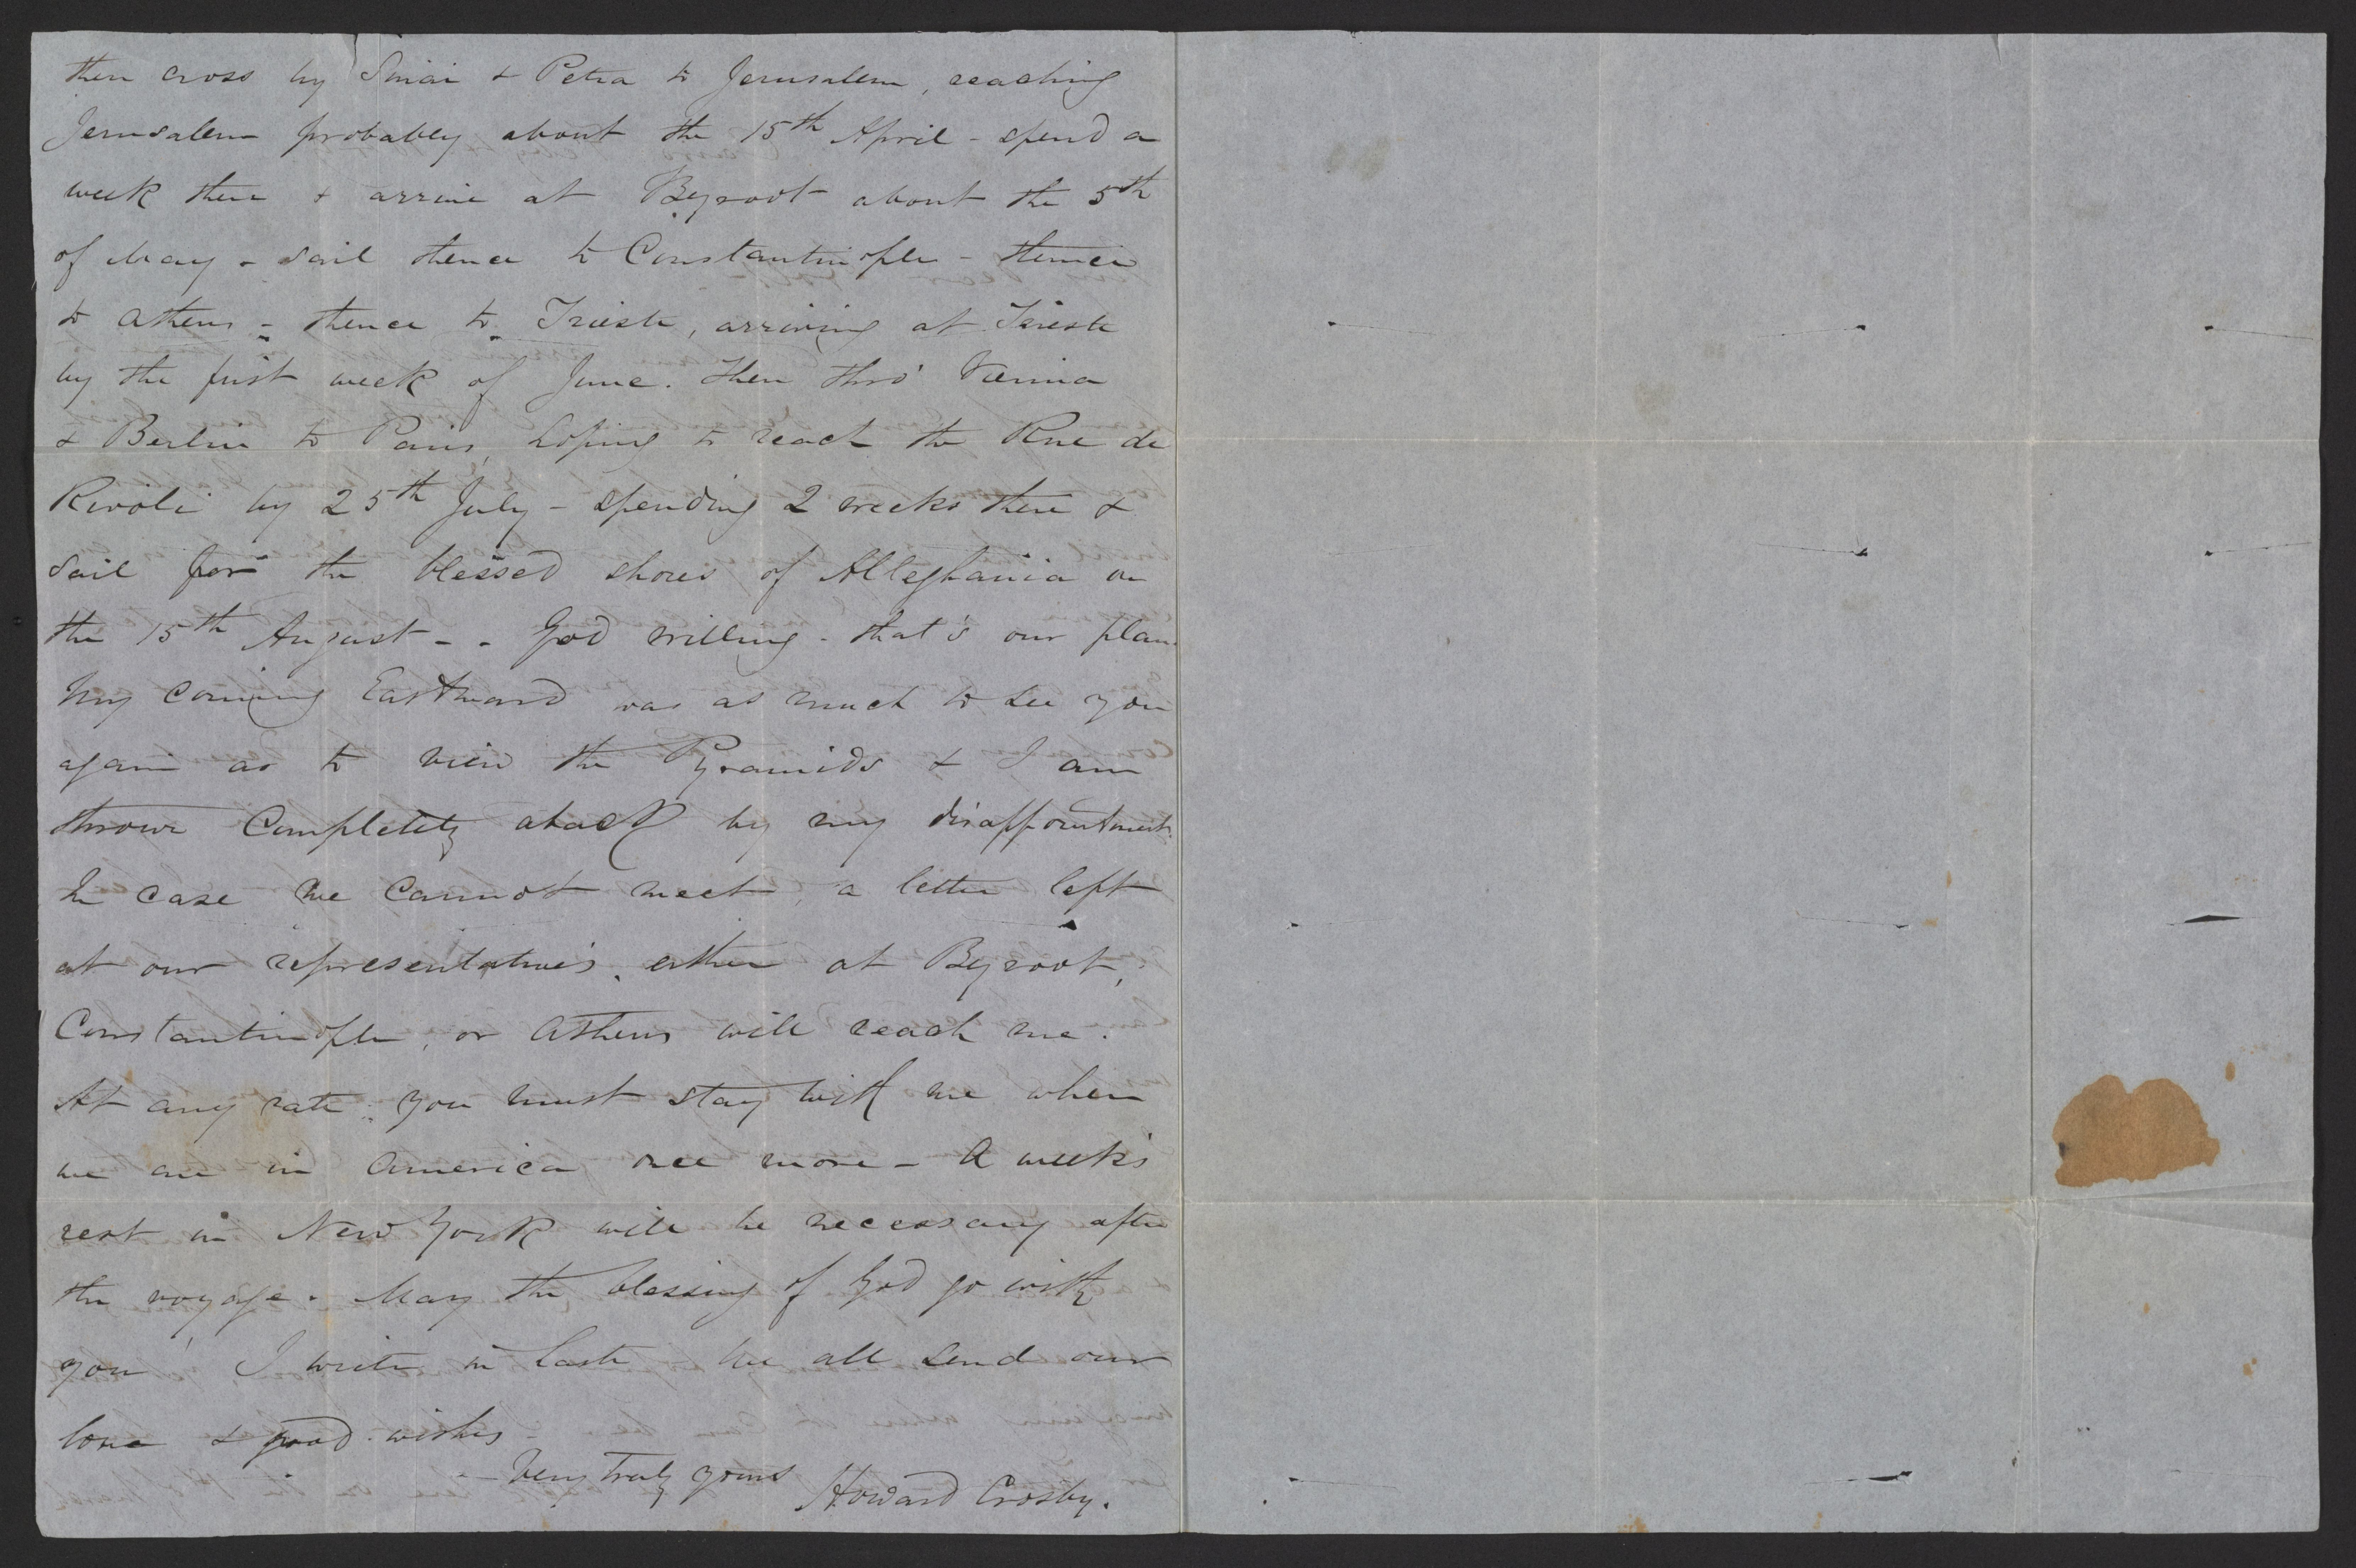 then cross by Sinai & Petra to Jerusalem, reaching
Jerusalem probably about the 15th April - spend a
week there & arrive at Beyroot about the 5th
of May - sail thence to Constantinople - thence
to Athens - thence to Trieste, arriving at Trieste
by the first week of June. Then thro' Vienna
& Berlin to Paris, hoping to reach the Rue de
Rivoli by 25th July - spending 2 weeks there &
sail for the blessed shores of Alleghania on
the 15th August - - God willing - that's our plan.
My coming Eastward was as much to see you
again as to view the Pyramids & I am
thrown completely aback by my disappointment.
In case we cannot meet, a letter left
at our representative's, either at Beyroot,
Constantinople, or Athens will reach me.
At any rate, you must stay with me when
we are in America once more - A week's
rest in New York will be necessary after
the voyage. May the blessing of God go with
you! I write in haste We all send our
love & good wishes -
- Very truly yours
Howard Crosby.